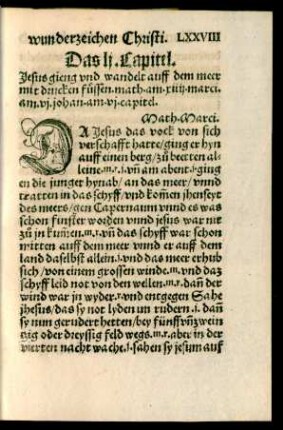 wunderzeichen Christi. LXXVIII
Das lj. Capitel.
Jesus gieng vnd wandelt auff dem meer
mit drucken füssen. math. am. xiiij. marci.
am. vj. johan. am. vj. capitel.
Math. Marci.
DA Jesus das volck von sich
verschafft hatte / ging er hyn
auff einen berg / zů beetten al-
leine. m. r. i. vñ am abent. i. ging
en die junger hynab / an das meer / vnnd
tratten in das schyff / vnd komen jhenseyt
des meers / gen Capernaum vnnd es was
schon finster worden vnnd jesus war nit
zů jn kumen. m. r. vñ das schyff war schon
mitten auff dem meer vnnd er auff dem
land daselbst allein. i. vnd das meer erhub
sich / von einem grossen winde. m. vnd daz
schyff leid not von den wellen. m. r. dañ der
wind war jn wyder. r. vnd entgegen Sahe
jhesus / das sy not lyden im rudern. i. dañ
sy nun gerudert hetten / bey fünffvñzwein
tzig oder dreyssig feld wegs. m. r. aber in der
vierten nacht wache. i. sahen sy jesum auf